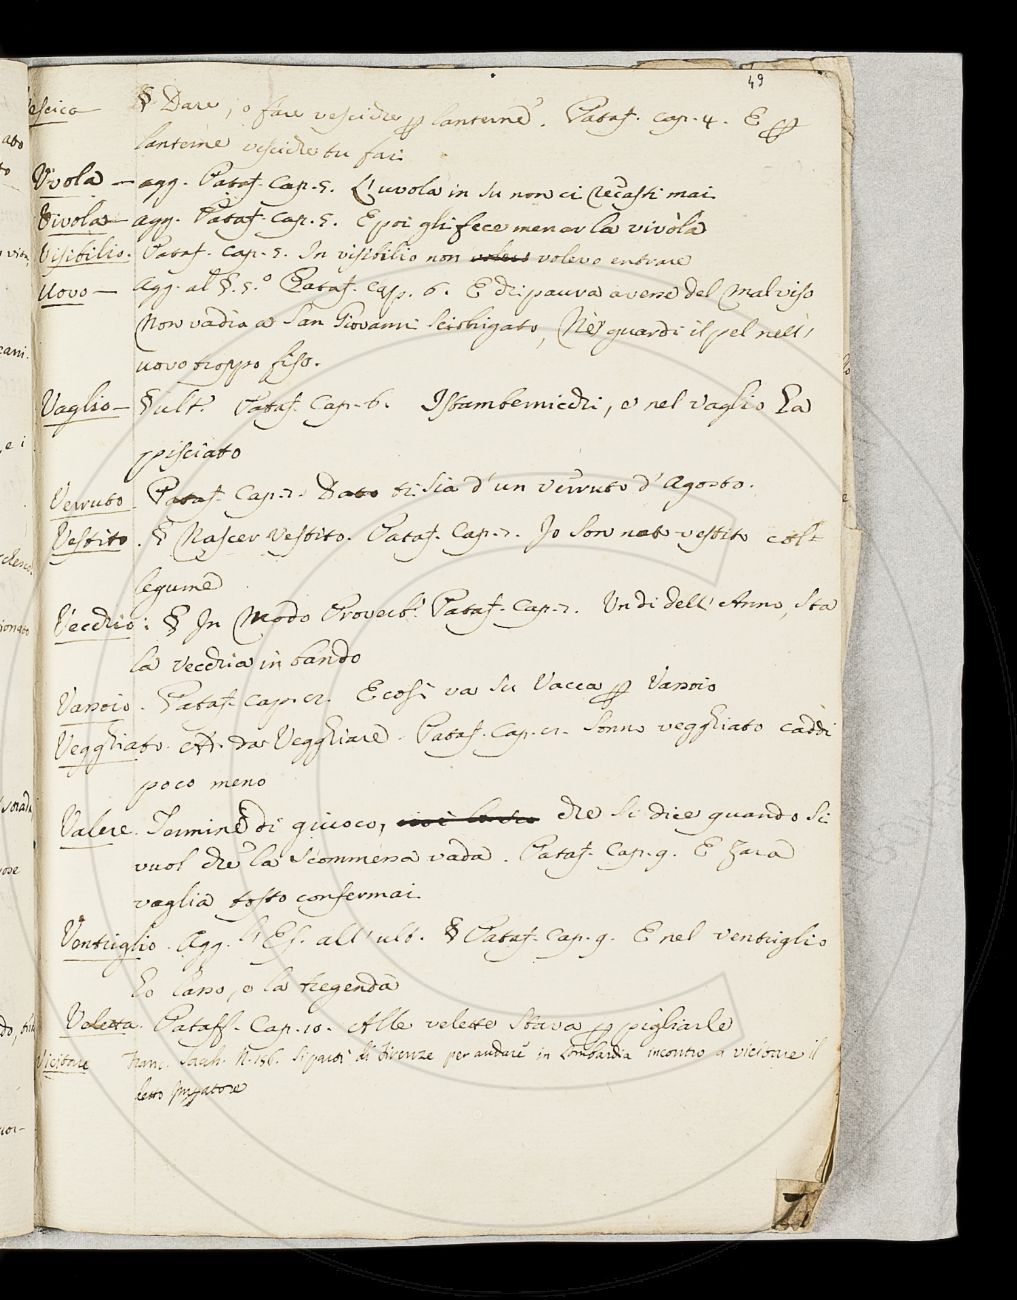 49
Vescica § Dare, o fare vesciche p lanterne. Pataf. cap. 4. E p
lanterne vesciche tu fai
Uvola — agg. Pataf. Cap. 5. L'uvola in su non ci recasti mai
Vivola — agg. Pataf. Cap. 5. E poi gli fece menar la vivola
Visibilio. Pataf. Cap. 5. In visibilio non volevo entrare
Uovo — Agg. al §. 5.º Pataf. Cap. 6. E di paura avere del mal viso
Non vadia a San Giovanni sciorigato, Nè guardi il pel nell'
uovo troppo fiso.
Vaglio — § ult. Pataf. Cap. 6. Istambernicchi, e nel vaglio ha
pisciato
Verruto Pataf. Cap. 7. Dato ti sia d'un verruto d'Agosto.
Vestito. § Nascer vestito. Pataf. Cap. 7. Io son nato vestito col
legume
Vecchio: § In Modo Proverb. Pataf. Cap. 7. Un dì dell'Anno, sta
la vecchia in bando
Vassoio. Pataf. Cap. Ecosì va su Vacca p Vassoio
Vegghiato. Ad. da Vegghiare. Pataf. Cap. Sonno vegghiato caddi
poco meno
Valere. Termine di giuoco, che si dice quando si
vuol che la scommessa vada. Pataf. Cap. 9. E Zara
vaglia tosto confermai
Ventriglio. Agg. l'Es. all'ult. § Pataf. Cap. 9. E nel ventriglio
ho l'asso, e la tregenda
Veletta. Pataff. Cap. 10. Alle velette stava p pigliarle
Vicitare Franc. Sacch. N. 156. Si partì di Firenze per andare in Lombardia incontro a vicitare il
detto
Z